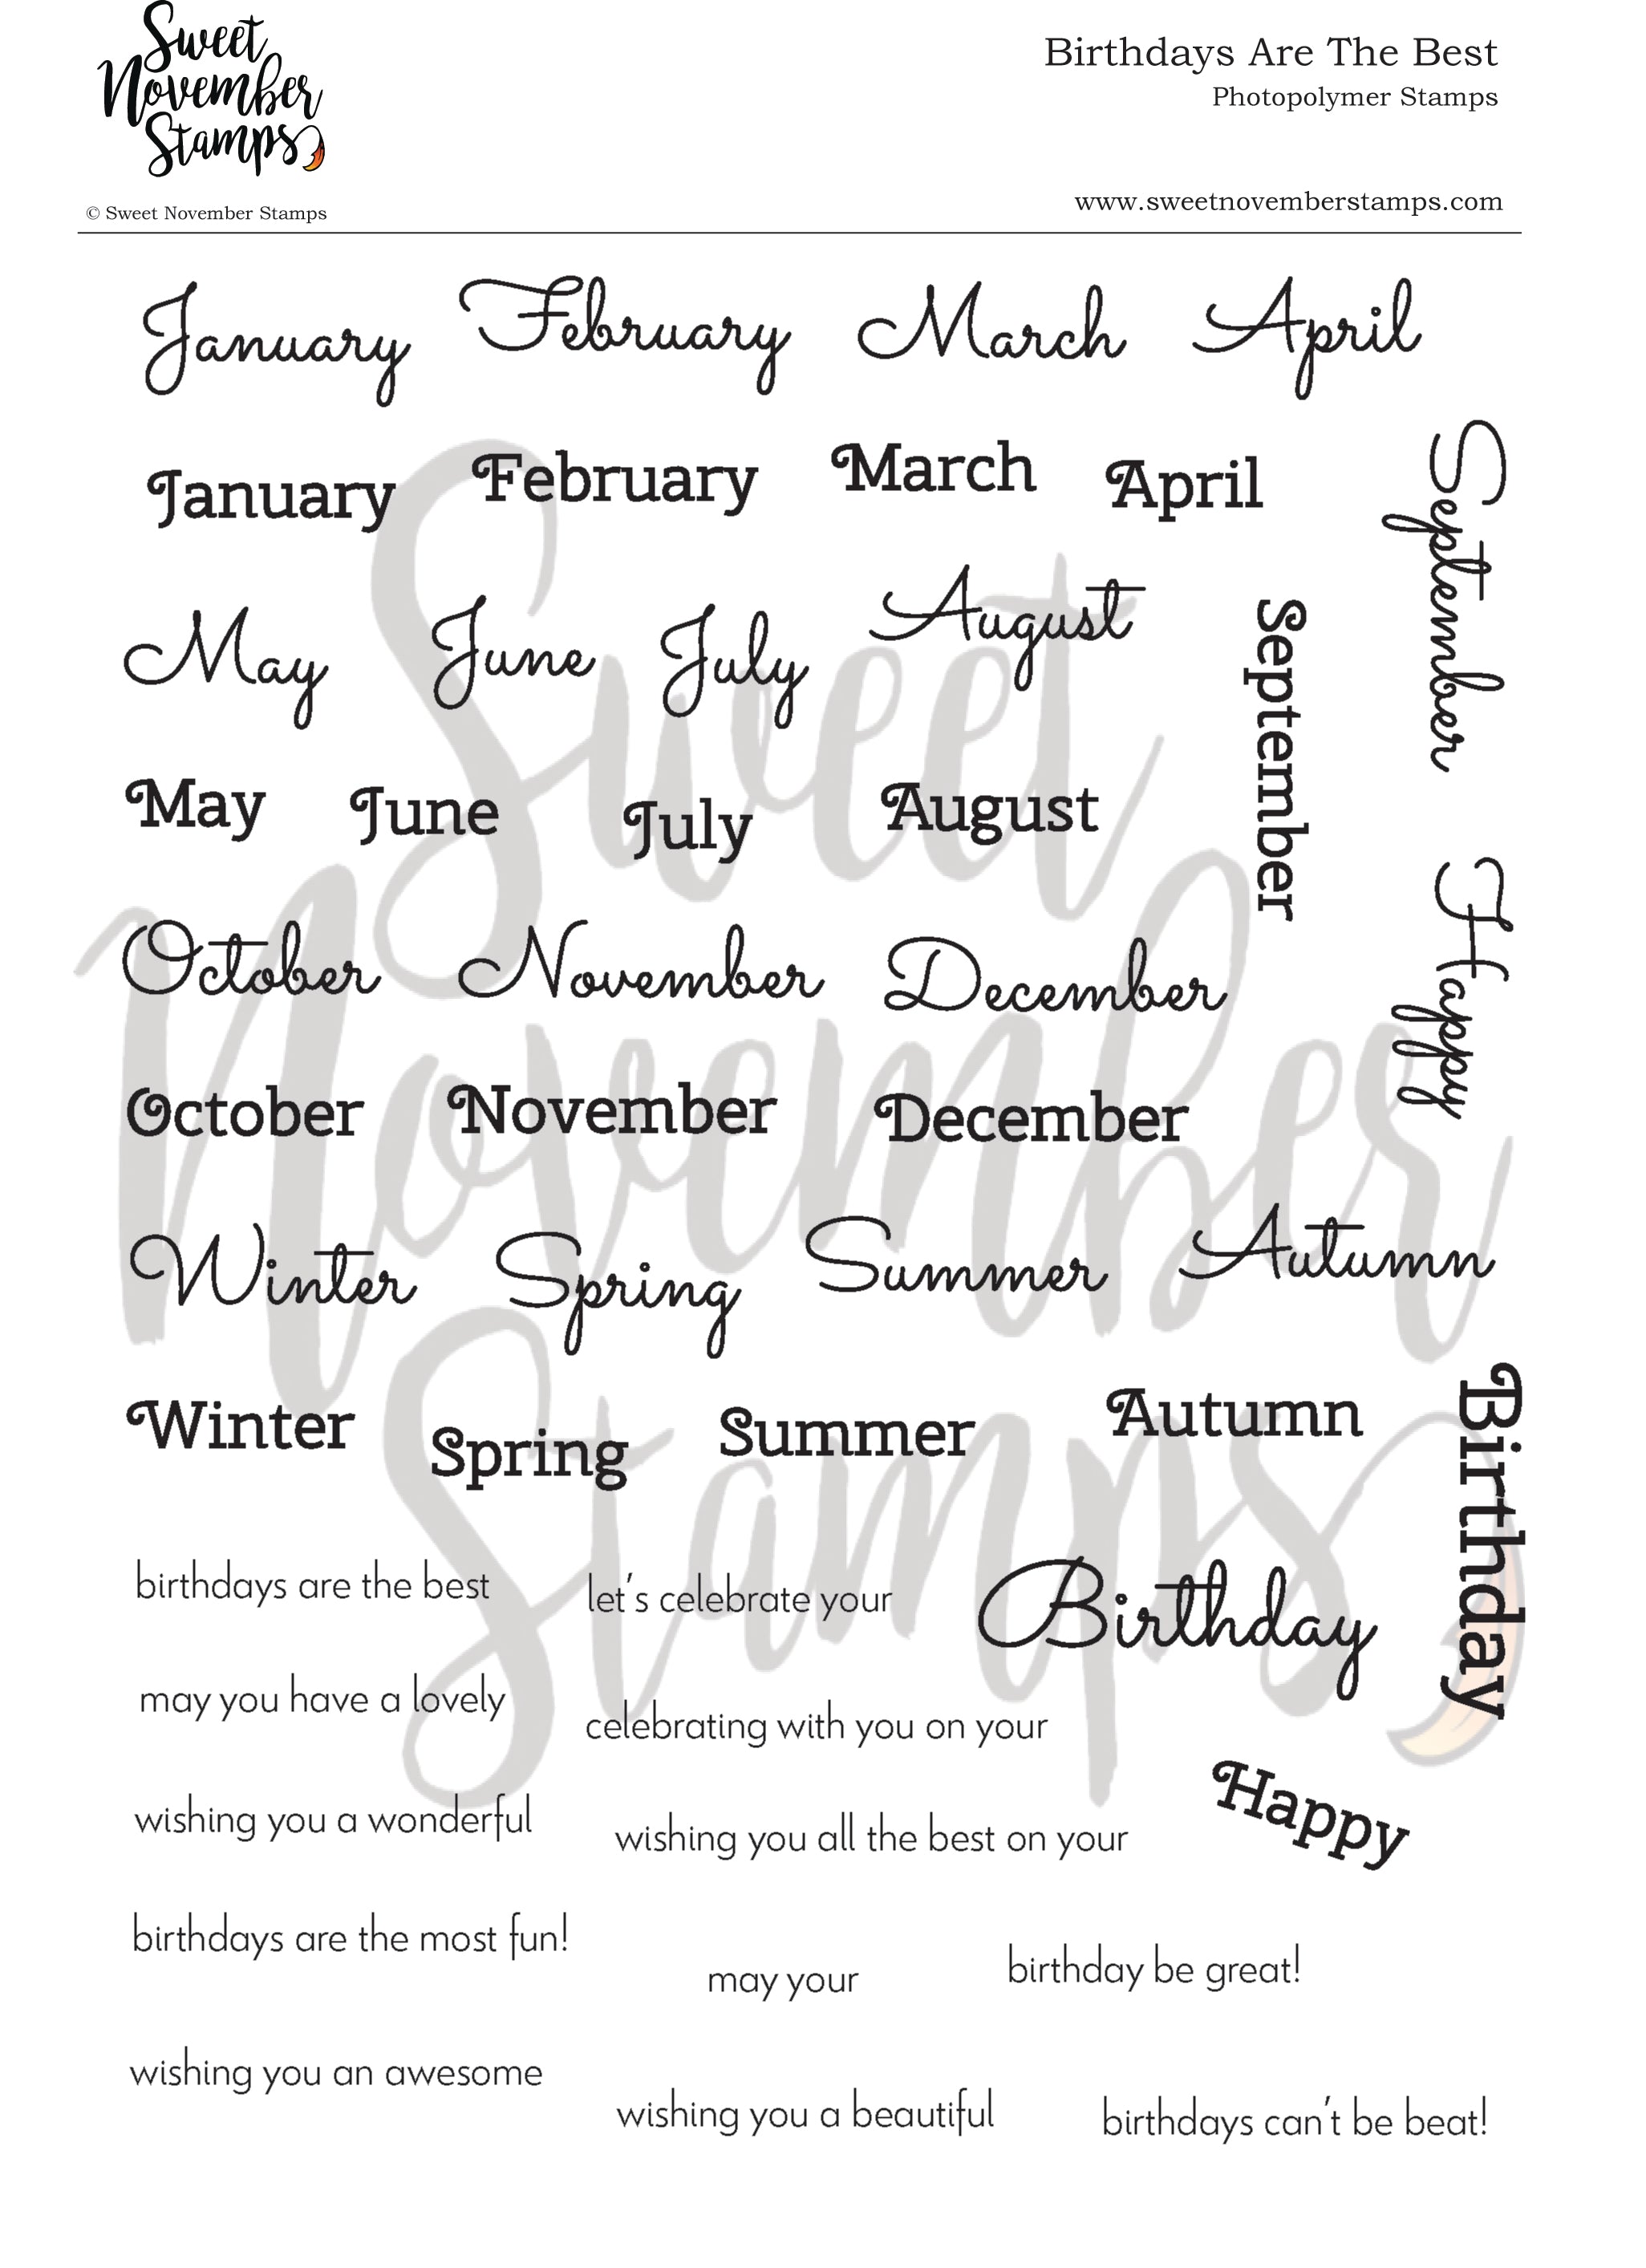 Sweet
November
Stamps
© Sweet November Stamps
Birthdays Are The Best
Photopolymer Stamps
www.sweetnovemberstamps.com
January February March April
January February March April
September
May June July August
September
May June July August
Happy
October November December
October November December
Winter Spring Summer Autumn
Winter Spring Summer Autumn
Birthday
birthdays are the best
let's celebrate your
Birthday
may you have a lovely
celebrating with you on your
Happy
wishing you a wonderful
wishing you all the best on your
birthdays are the most fun!
may your
birthday be great!
wishing you an awesome
wishing you a beautiful
birthdays can't be beat!
Sweet
November
Stamps